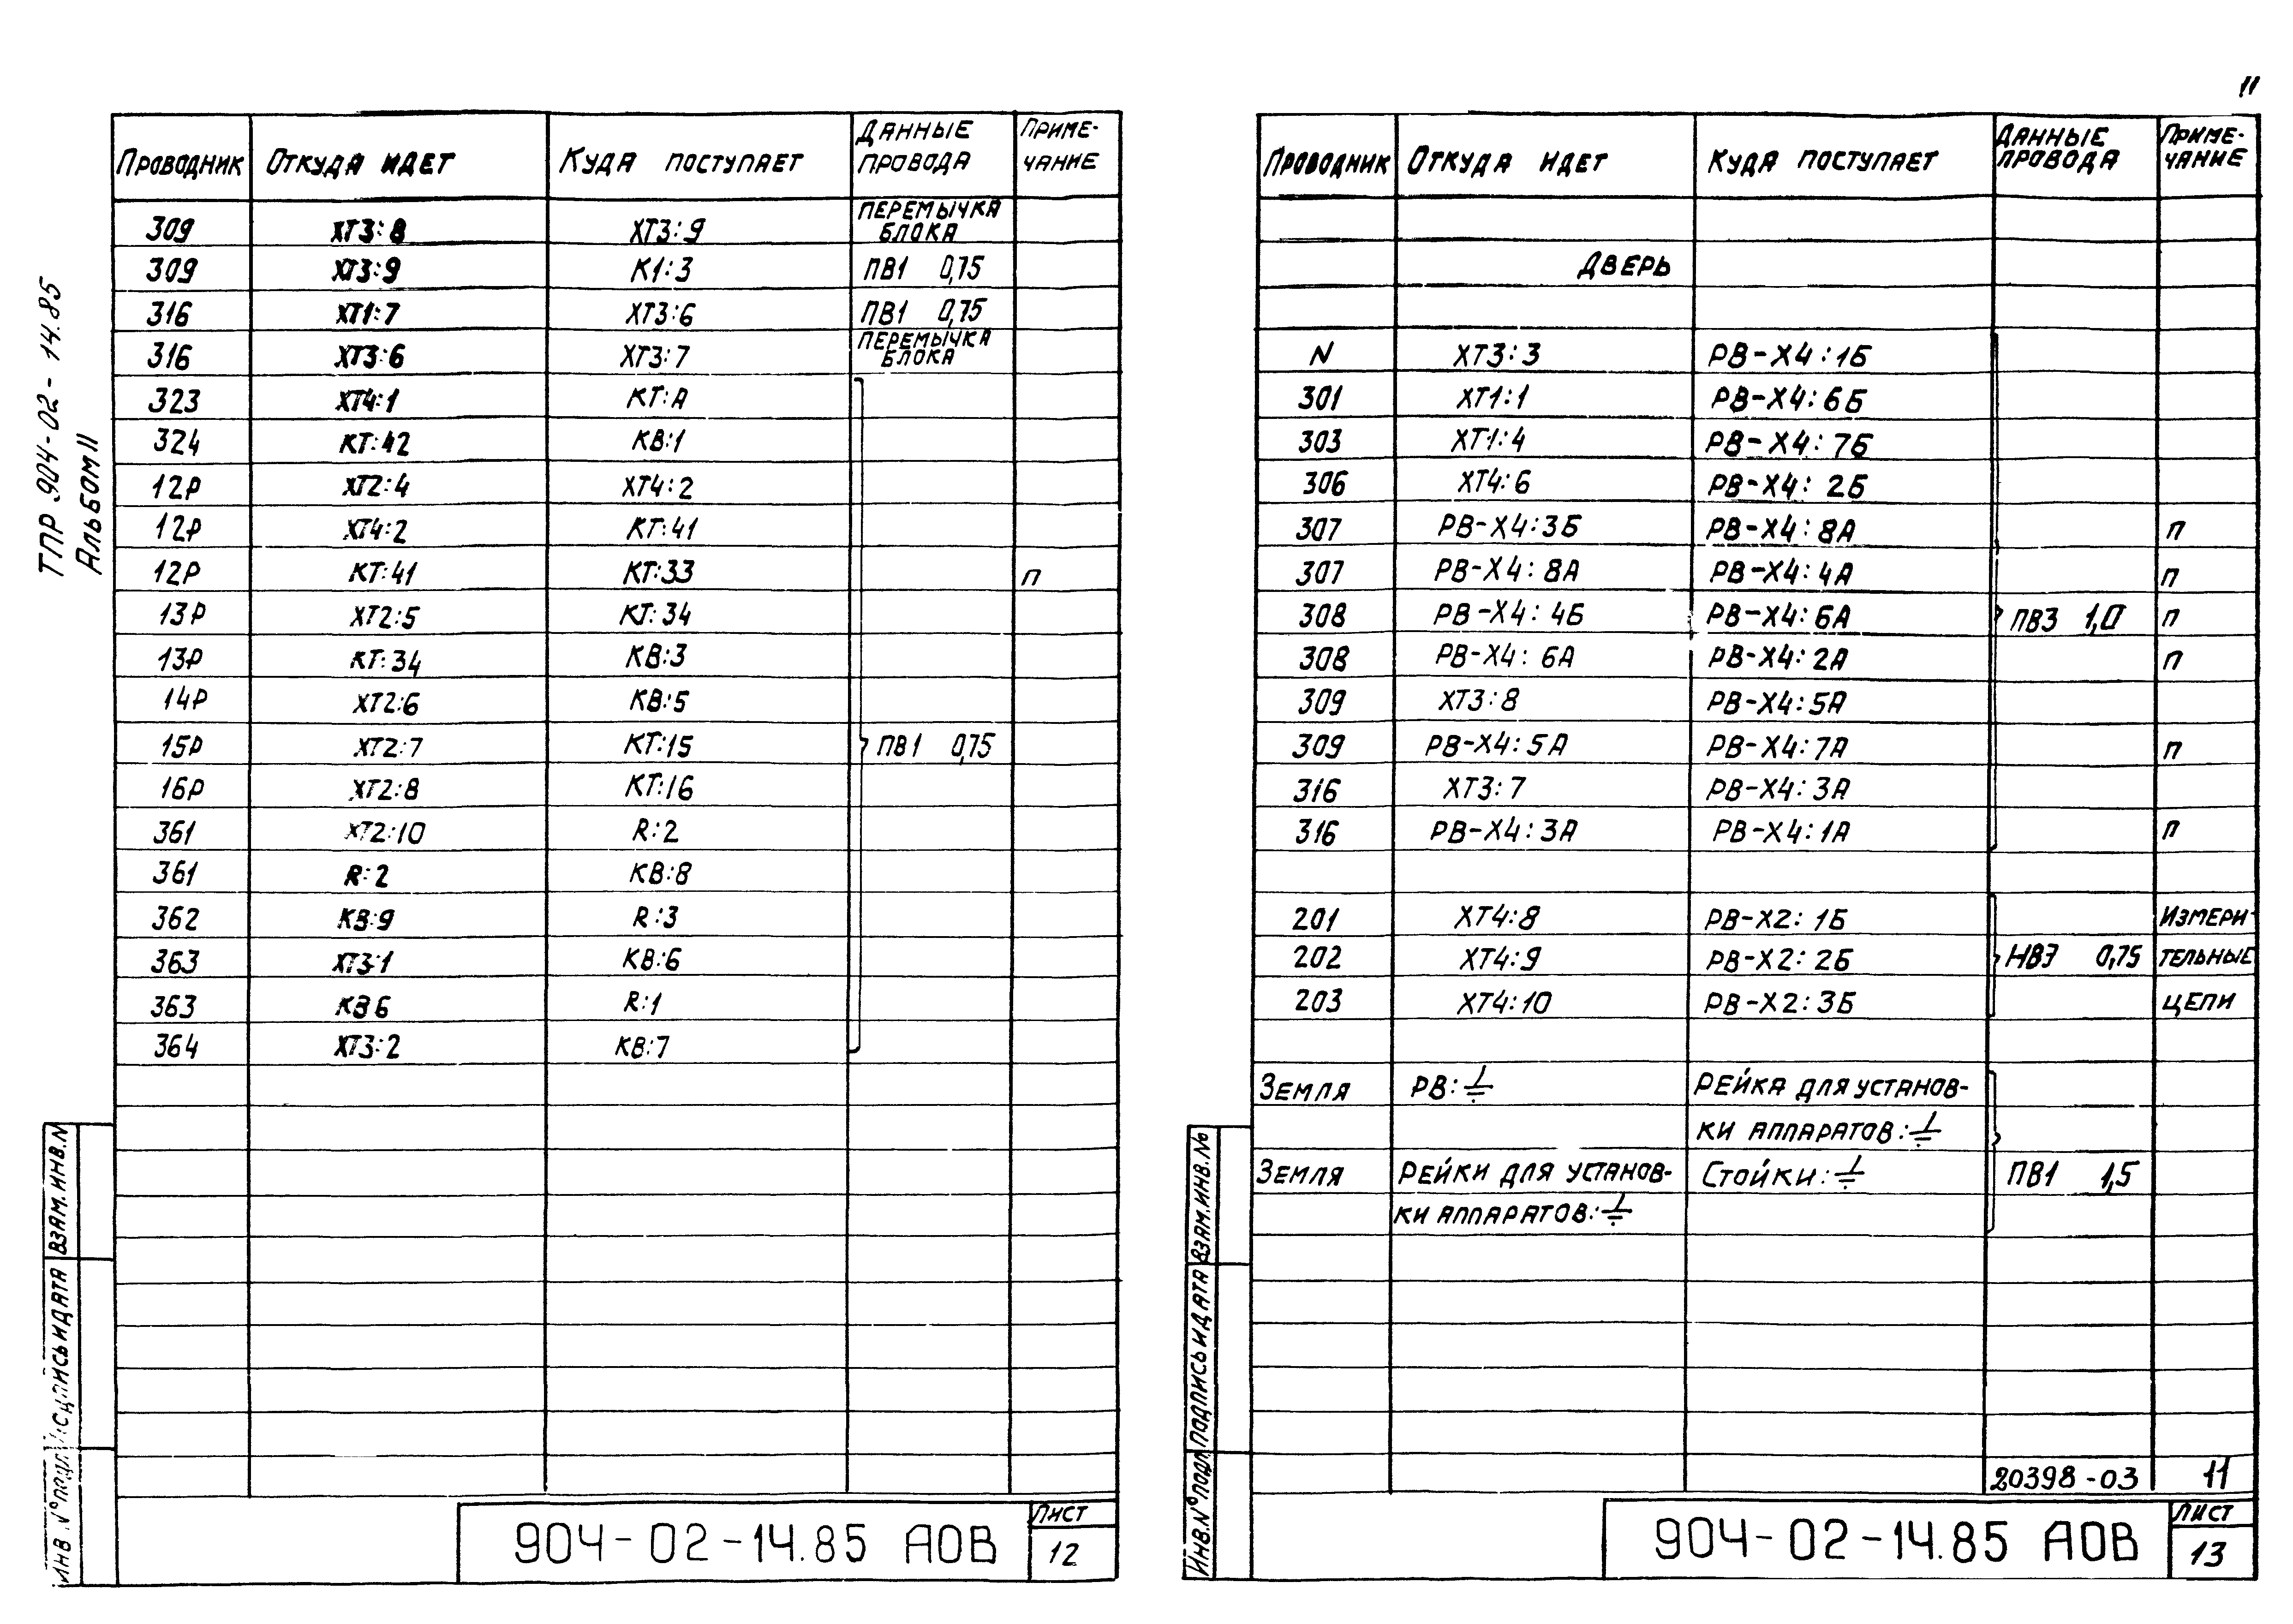 11
ТПР 904-02-14.85
Альбом II
Проводник Откуда идет Куда поступает Данные провода Приме-чание
309 XT3:8 XT3:9 ПЕРЕМЫЧКА БЛОКА
309 XT3:9 K1:3 ПВ1 0,75
316 XT1:7 XT3:6 ПВ1 0,75
316 XT3:6 XT3:7 ПЕРЕМЫЧКА БЛОКА
323 XT4:1 KT:A
324 KT:42 KB:1
12P XT2:4 XT4:2
12P XT4:2 KT:41
12P KT:41 KT:33 П
13P XT2:5 KT:34
13P KT:34 KB:3
14P XT2:6 KB:5
15P XT2:7 KT:15 ПВ1 0,75
16P XT2:8 KT:16
361 XT2:10 R:2
361 R:2 KB:8
362 KB:9 R:3
363 XT3:1 KB:6
363 KB6 R:1
364 XT3:2 KB:7
ВЗАМ.ИНВ.N
ИНВ.N° подл
904-02-14.85 АОВ
Лист
12
Проводник Откуда идет Куда поступает Данные провода Приме-чание
ДВЕРЬ
N XT3:3 PB-X4:1Б
301 XT1:1 PB-X4:6Б
303 XT1:4 PB-X4:7Б
306 XT4:6 PB-X4:2Б
307 PB-X4:3Б PB-X4:8A П
307 PB-X4:8A PB-X4:4A П
308 PB-X4:4Б PB-X4:6A ПВ3 1,0 П
308 PB-X4:6A PB-X4:2A П
309 XT3:8 PB-X4:5A
309 PB-X4:5A PB-X4:7A П
316 XT3:7 PB-X4:3A
316 PB-X4:3A PB-X4:1A П
201 XT4:8 PB-X2:1Б ИЗМЕРИ-
202 XT4:9 PB-X2:2Б НВЭ 0,75 ТЕЛЬНЫЕ
203 XT4:10 PB-X2:3Б ЦЕПИ
Земля PB:⏚ РЕЙКА ДЛЯ УСТАНОВ-
КИ АППАРАТОВ:⏚
Земля РЕЙКИ ДЛЯ УСТАНОВ- Стойки:⏚ ПВ1 1,5
КИ АППАРАТОВ:⏚
20398-03 11
ВЗАМ.ИНВ.№
ПОДПИСЬ И ДАТА
ИНВ.N° ПОДЛ
904-02-14.85 АОВ
Лист
13